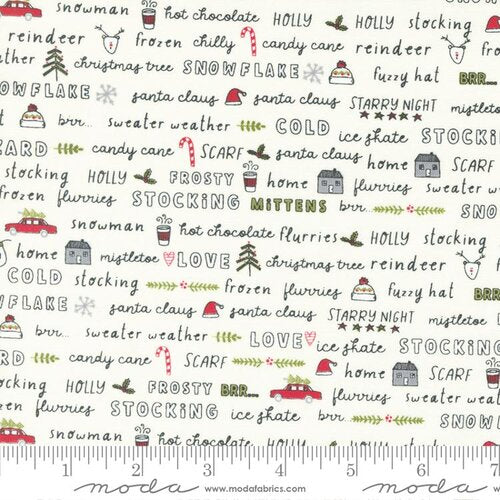 snowman hot chocolate HOLLY stocking
reindeer frozen chilly candy cane reindeer
christmas tree SNOWFLAKE fuzzy hat BRR...
WFLAKE santa claus santa claus STARRY NIGHT mistletoe
brr... sweater weather COLD ice skate STOCKING
ZARD candy cane SCARF santa claus home SCARF
stocking HOLLY FROSTY flurries sweater we
frozen flurries STOCKING MITTENS brr... frozen
snowman hot chocolate flurries HOLLY stocking
home mistletoe LOVE christmas tree reindeer
COLD stocking frozen flurries fuzzy hat BRR...
WFLAKE santa claus santa claus STARRY NIGHT mistletoe
brr... sweater weather LOVE ice skate STOCKING
ZARD candy cane SCARF home SCARF
stocking HOLLY FROSTY BRR... flurries sweater we
frozen flurries STOCKING ice skate brr... frozen
snowman hot chocolate HOLLY stocking
1 2 3 4 5 6 7
moda www.modafabrics.com moda www.modafabrics.com moda